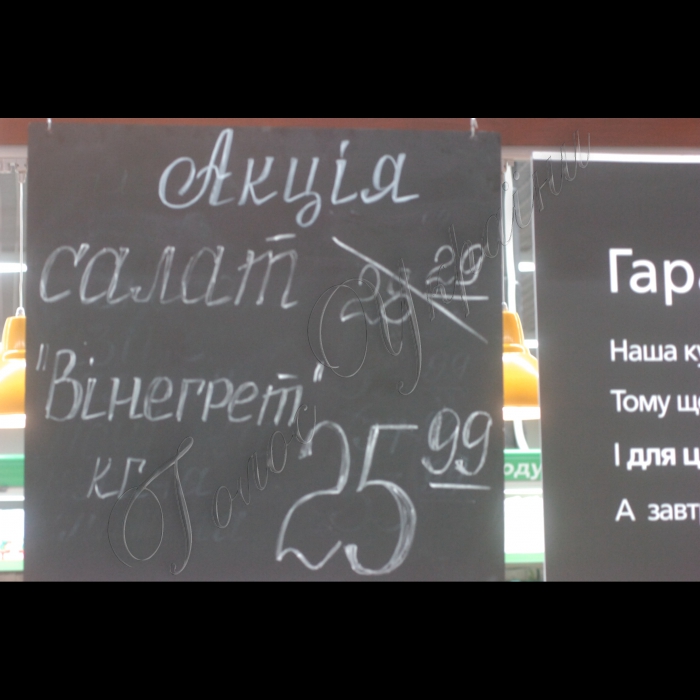 Акція
салат 28 29
"Вінегрет"
кг 25 99
Гара
Наша ку
Тому що
І для ц
А завт
оду
Голос України